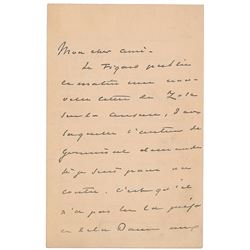 Mon cher ami -
Le Figaro publie
ce matin une nou-
velle lettre de Zola
sur la censure, dans
laquelle l'auteur de
Germinal demande
si je suis pour ou
contre. C'est qu'il
n'a pas lu la préfa-
ce de la Dame aux